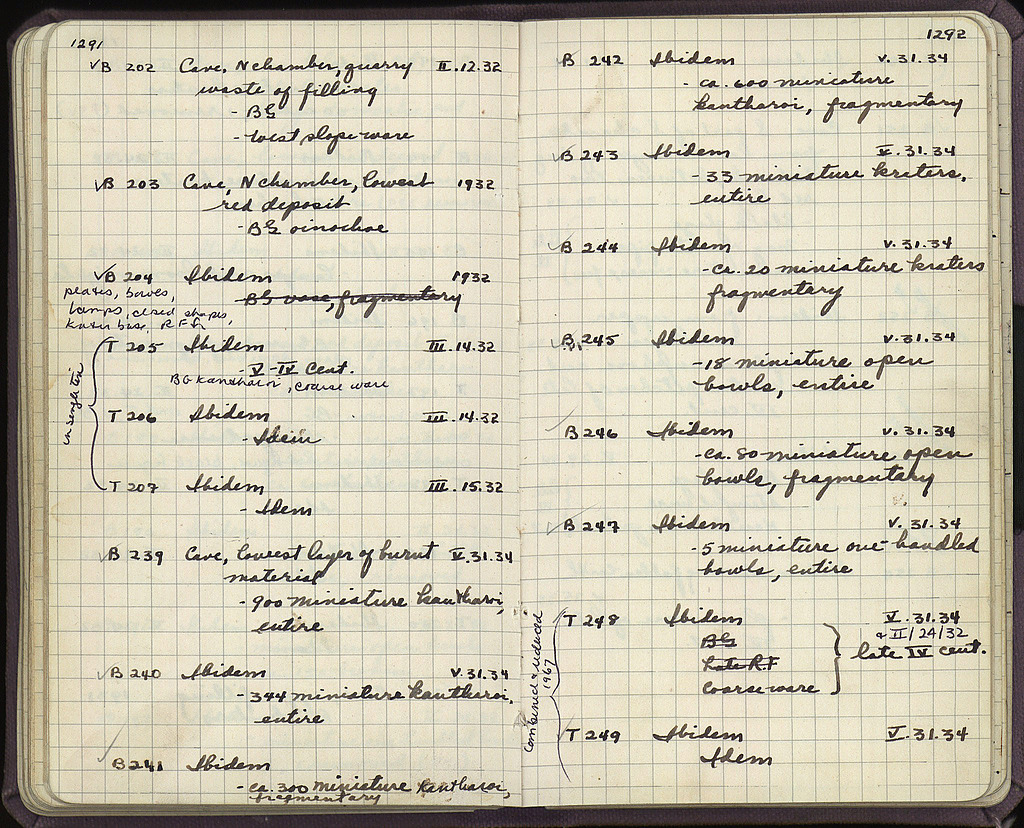 1291
√B 202 Cave, N chamber, quarry II.12.32
waste of filling
- BG
- West slope ware
√B 203 Cave, N chamber, lowest 1932
red deposit
- BG oinochoe
√B 204 Ibidem 1932
plates, bowls,
lamps, closed shapes,
krater base, RF fr.
- BG vase, fragmentary
in single tin
T 205 Ibidem III.14.32
- V-IV Cent.
BG kantharoi, coarse ware
T 206 Ibidem III.14.32
- Idem
T 207 Ibidem III.15.32
- Idem
√B 239 Cave, lowest layer of burnt V.31.34
material
- 900 miniature kantharoi,
entire
√B 240 Ibidem V.31.34
- 344 miniature kantharoi,
entire
√B 241 Ibidem
- ca. 300 miniature kantharoi,
fragmentary
1292
√B 242 Ibidem V.31.34
- ca. 600 miniature
kantharoi, fragmentary
√B 243 Ibidem V.31.34
- 33 miniature kraters,
entire
√B 244 Ibidem V.31.34
- ca. 20 miniature kraters
fragmentary
√B 245 Ibidem V.31.34
- 18 miniature open
bowls, entire
√B 246 Ibidem V.31.34
- ca. 80 miniature open
bowls, fragmentary
√B 247 Ibidem V.31.34
- 5 miniature one-handled
bowls, entire
combined & reduced
1967
√T 248 Ibidem V.31.34
& II/24/32
BG
Late R.F
coarse ware
late IV cent.
√T 249 Ibidem V.31.34
Idem